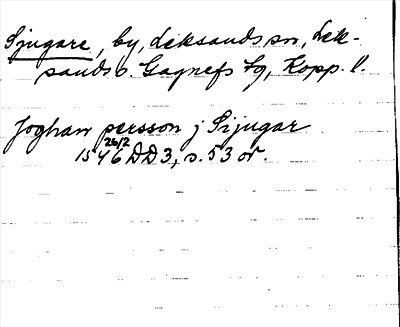 Sjugare, by, Leksands sn, Lek-
sands o. Gagnefs tg, Kopp. l.
Joghan persson j Sijugar
1546 26/2 DD3, s. 53 or.